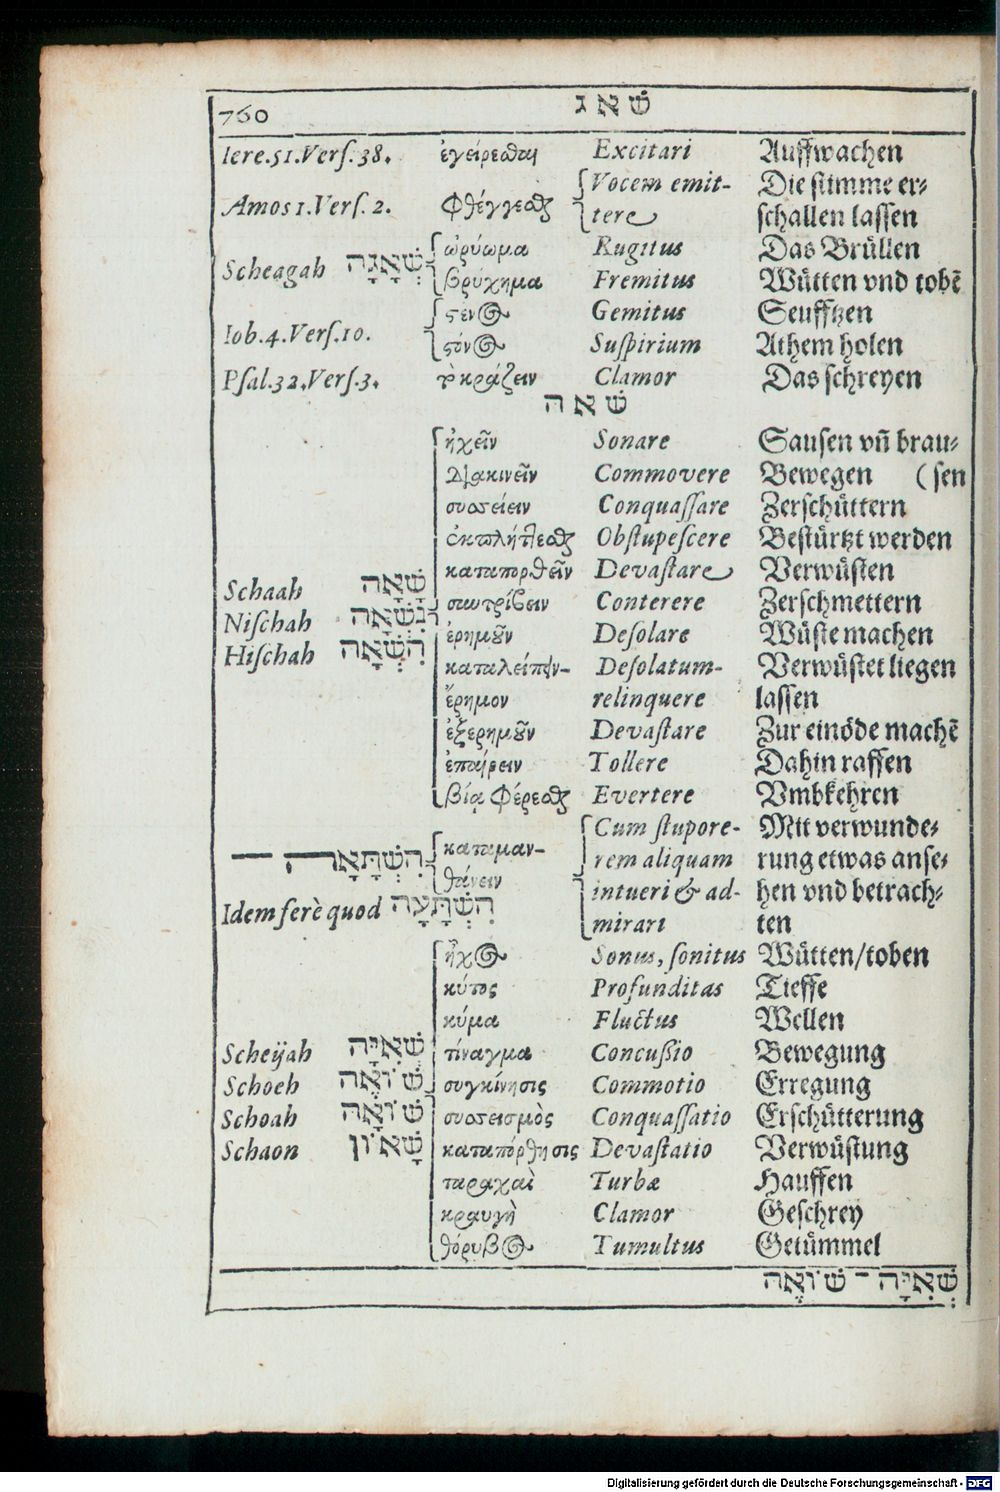 760 שׁאג
Iere.51.Verſ.38. ἐγείρεσθαι Excitari Auffwachen
Vocem emit- Die stimme er⸗
Amos 1.Verſ.2. Φθέγγεσθαι tere schallen lassen
ὠρύωμα Rugitus Das Brüllen
Scheagah שְׁאָגָה βρύχημα Fremitus Wütten vnd tobẽ
στένος Gemitus Seufftzen
Iob.4.Verſ.10. στόνος Suſpirium Athem holen
Pſal.32.Verſ.3. τὸ κράζειν Clamor Das schreyen
שׁאה
ἠχεῖν Sonare Sausen vñ brau⸗
διακινεῖν Commovere Bewegen (sen
συσσείειν Conquaſſare Zerschüttern
ἐκπλήττεσθαι Obſtupeſcere Bestürtzt werden
καταπορθεῖν Devaſtare Verwüsten
Schaah שָׁאָה
συντρίβειν Conterere Zerschmettern
Niſchah נִשְׁאָה
ἐρημοῦν Deſolare Wüste machen
Hiſchah הִשְׁאָה
καταλείπειν- Deſolatum- Verwüstet liegen
ἔρημον relinquere lassen
ἐξερημοῦν Devaſtare Zur einöde machẽ
ἐπαίρειν Tollere Dahin raffen
βίᾳ Φέρεσθαι Evertere Vmbkehren
Cum ſtupore- Mit verwunde⸗
הִשְׁתָּאָה — καταμαν- rem aliquam rung etwas anse⸗
θάνειν intueri & ad- hen vnd betrach⸗
Idem ferè quod הִשְׁתָּעָה mirari ten
ἦχος Sonus, ſonitus Wütten/toben
κύτος Profunditas Tieffe
κύμα Fluctus Wellen
Scheijah שְׁאִיָּה τίναγμα Concuſsio Bewegung
Schoeh שׁוֹאֶה συγκίνησις Commotio Erregung
Schoah שׁוֹאָה συσσεισμὸς Conquaſſatio Erschütterung
Schaon שָׁאוֹן καταπόρθησις Devaſtatio Verwüstung
ταραχαὶ Turbæ Hauffen
κραυγὴ Clamor Geschrey
θόρυβος Tumultus Getümmel
שְׁאִיָּה - שׁוֹאֶה
Digitalisierung gefördert durch die Deutsche Forschungsgemeinschaft - DFG